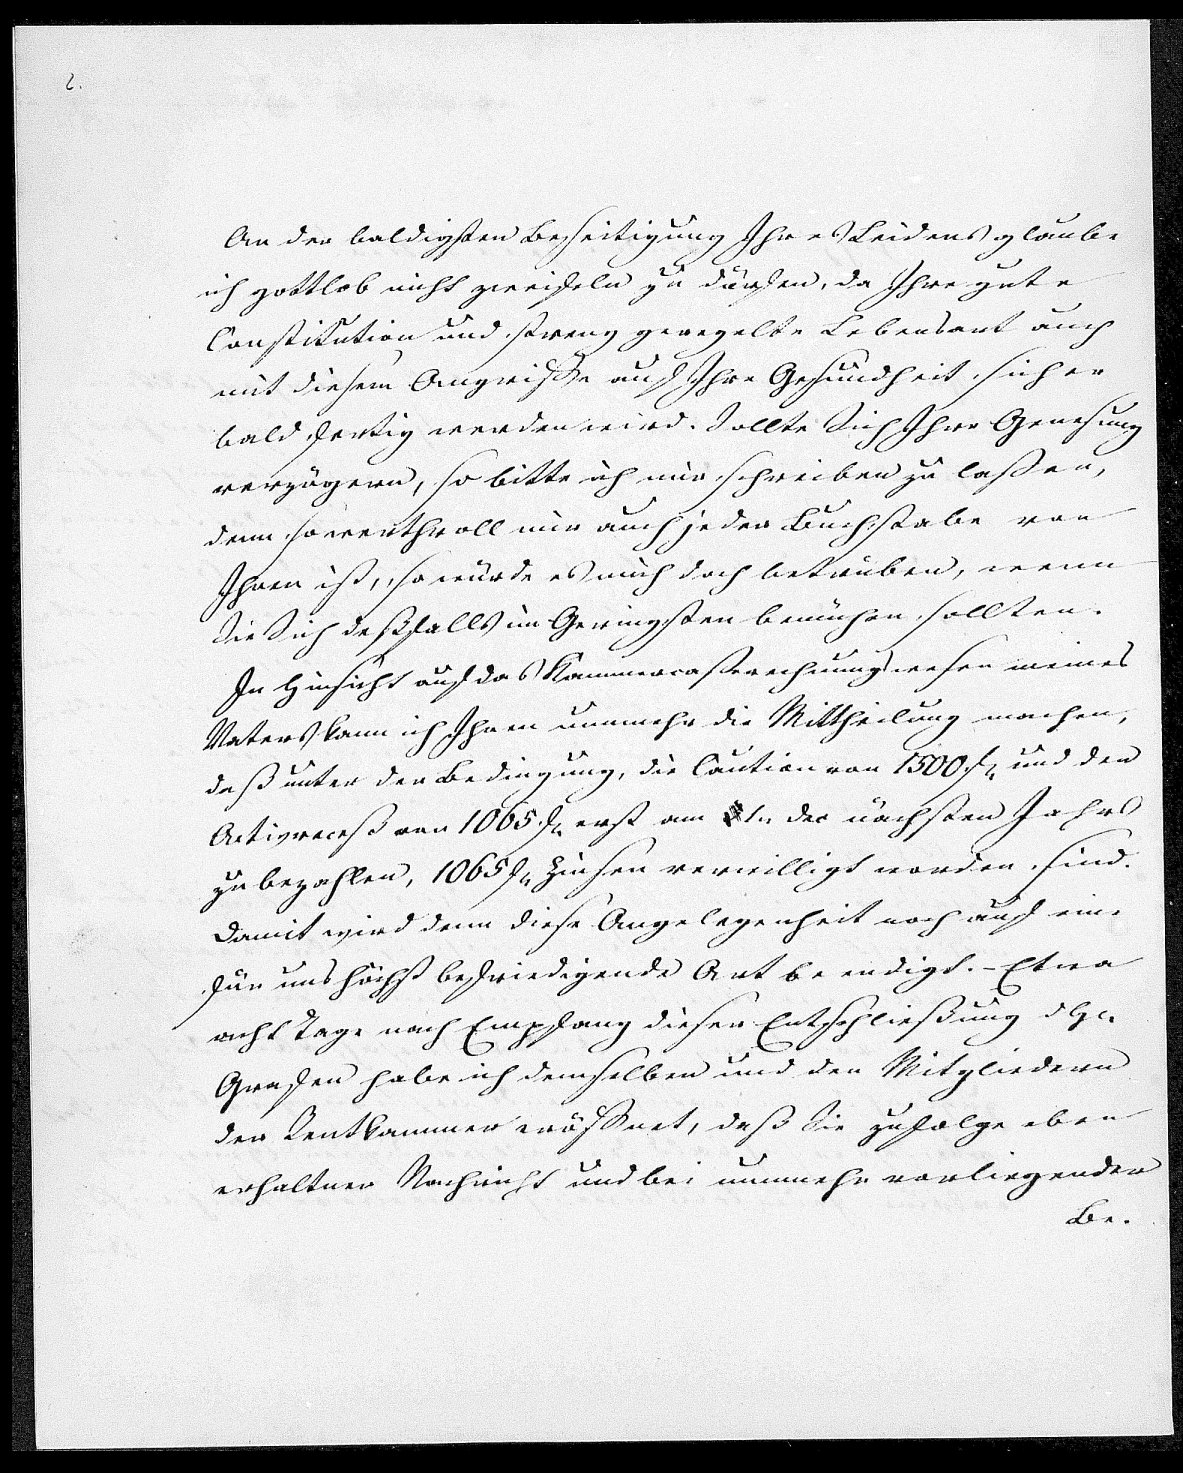 2.
An der baldigsten Beseitigung Ihres Leidens glaube
ich gottlob nicht zweifeln zu dürfen, da Ihre gute
Constitution und streng geregelte Lebensart auch
mit diesem Angriffe auf Ihre Gesundheit sicher
bald fertig werden wird. Sollte Sich Ihre Genesung
verzögern, so bitte ich mir schreiben zu laßen,
denn so werthvoll mir auch jeder Buchstabe von
Ihnen ist, so würde es mich doch betrüben, wenn
Sie Sich deßfalls im Geringsten bemühen sollten.
In Hinsicht auf das Kammercasserechnungswesen meines
Vaters kann ich Ihnen nunmehr die Mittheilung machen,
daß unter der Bedingung, die Caution von 1500 f. und den
Activreceß von 1065 f. erst am 1n des nächsten Jahrs
zu bezahlen, 1065 f. Zinsen verwilligt worden sind.
Damit wird denn diese Angelegenheit noch auf eine
für uns höchst befriedigende Art beendigt. – Etwa
acht Tage nach Empfang dieser Entschließung d H.
Grafen habe ich demselben und den Mitgliedern
der Rentkammer eröffnet, daß Sie zufolge eben
erhaltner Nachricht und bei nunmehr vorliegender
Be.